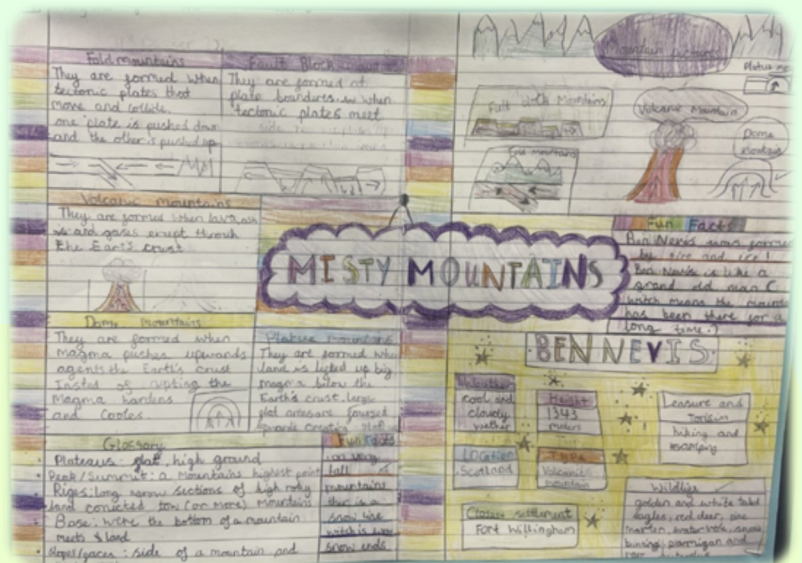 Fold mountains
They are formed when
tectonic plates that
move and collide.
one plate is pushed down
and the other is pushed up
Fault Block
They are formed at
plate when
tectonic plates meet
Volcanic mountains
They are formed when lava, ash
and gases erupt through
the Earth's crust
Dome mountains
They are formed when
magma pushes upwards
agents the Earth's crust
Insted of the
Magma hardens
and Cooles.
Plateau mountains
They are formed when
land is lifted up by
magma below the
Earth's crust. large
flat
Glossary
Plateaus: flat, high ground
Peak/Summit: a Mountains highest point
long narrow sections of high rocky
land Mountains
Base: were the bottom of a mountain
meets land
Slopes/faces: side of a mountain and
Fun Facts
tall
mountains
ther is a
snow line
snow ends
MISTY MOUNTAINS
Mountain
Fault Block Mountains
Volcanic Mountain
Dome
Fold mountains
Fun Facts
Ben Nevis was formed
by fire and ice!
Ben Nevis is like a
grand old man (
witch means the mountain
has been there for a
long time.)
BEN NEVIS
Weather
cool and
cloudy
wether
Height
1343
meters
Leasure and
Torisim
hiking and
Location
Scotland
Type
Volcanic
mountain
Closest settlement
Fort Willingham
Wildlife
golden and white taled
eagles, red deer, pine
marten, water vole, snow
bunting, parmigan and